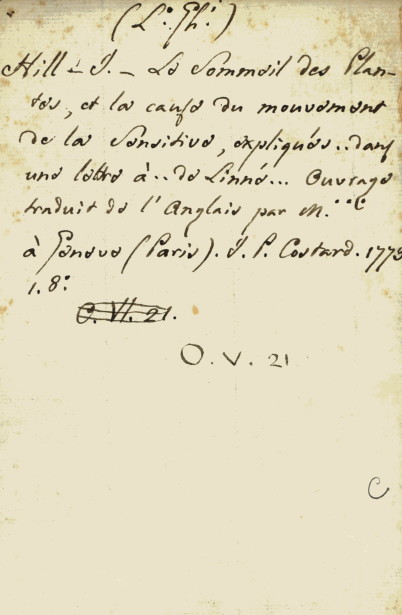 (L.° Ph.°)
Hill - J. - Le Sommeil des Plan-
tes, et la cause du mouvement
de la Sensitive, expliqués..dans
une lettre à..de Linné... Ouvrage
traduit de l'Anglais par M.
à Geneve (Paris). J. P. Costard. 1773
1. 8.°
C. VI. 21.
O. V. 21
C